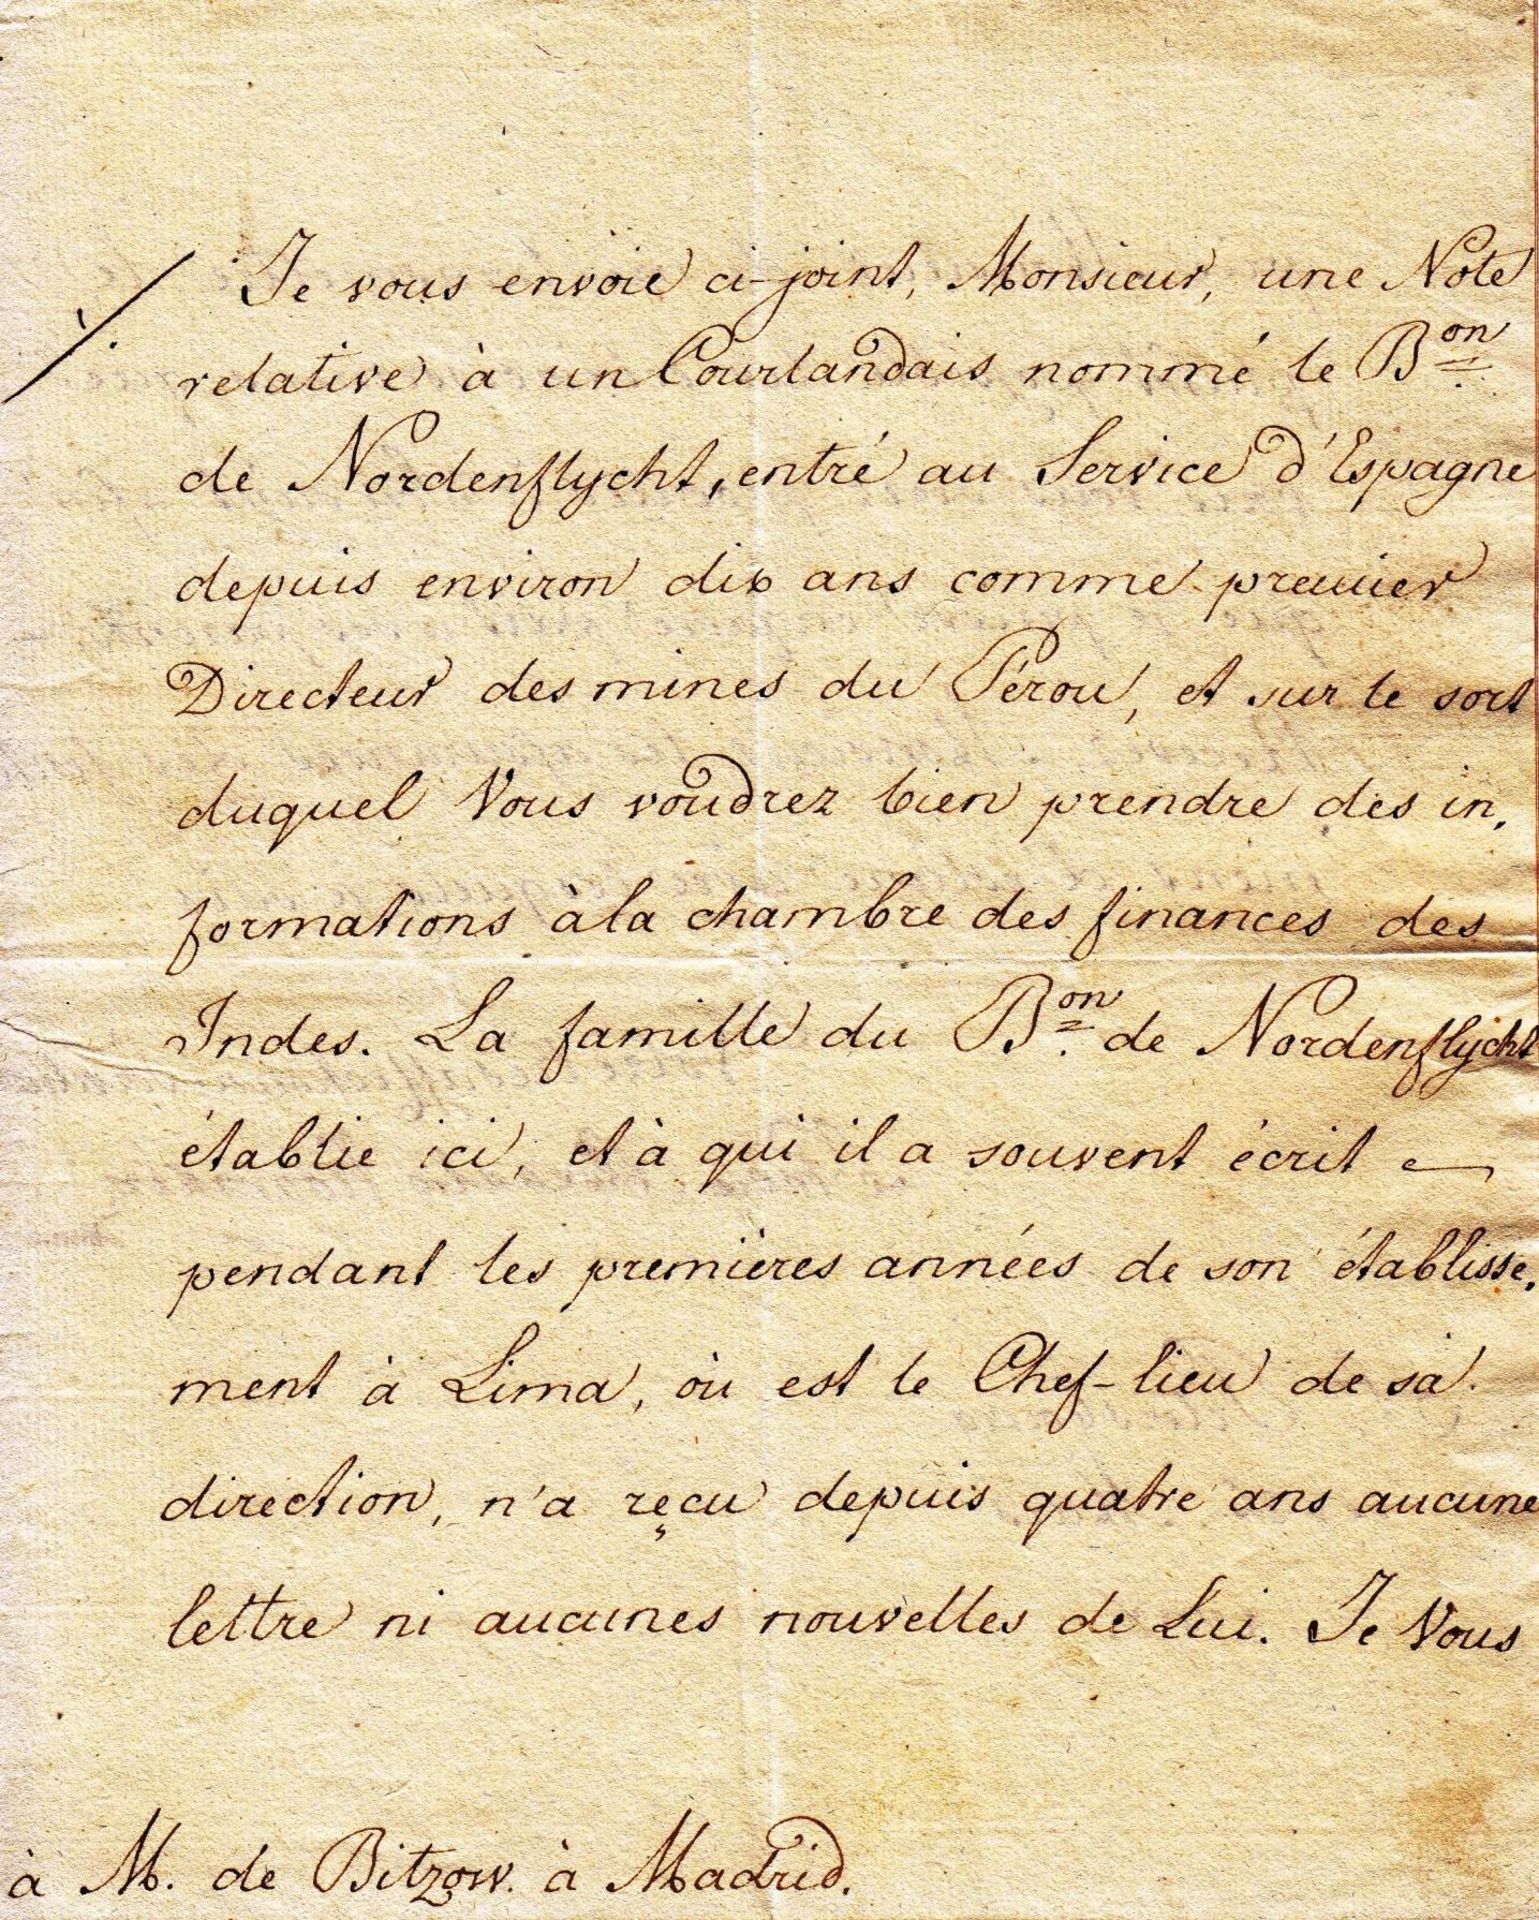 Je vous envoie ci-joint, Monsieur, une Note
relative à un Courlandais nommé le Bon.
de Nordenflycht, entré au Service d'Espagne
depuis environ dix ans comme premier
Directeur des mines du Pérou, et sur le sort
duquel Vous voudrez bien prendre des in,
formations à la chambre des finances des
Indes. La famille du Bon. de Nordenflycht
établie ici, et à qui il a souvent écrit
pendant les premières années de son établisse,
ment à Lima, où est le Chef-lieu de sa
direction, n'a reçu depuis quatre ans aucune
lettre ni aucunes nouvelles de Lui. Je Vous
à M. de Bitzow. à Madrid.